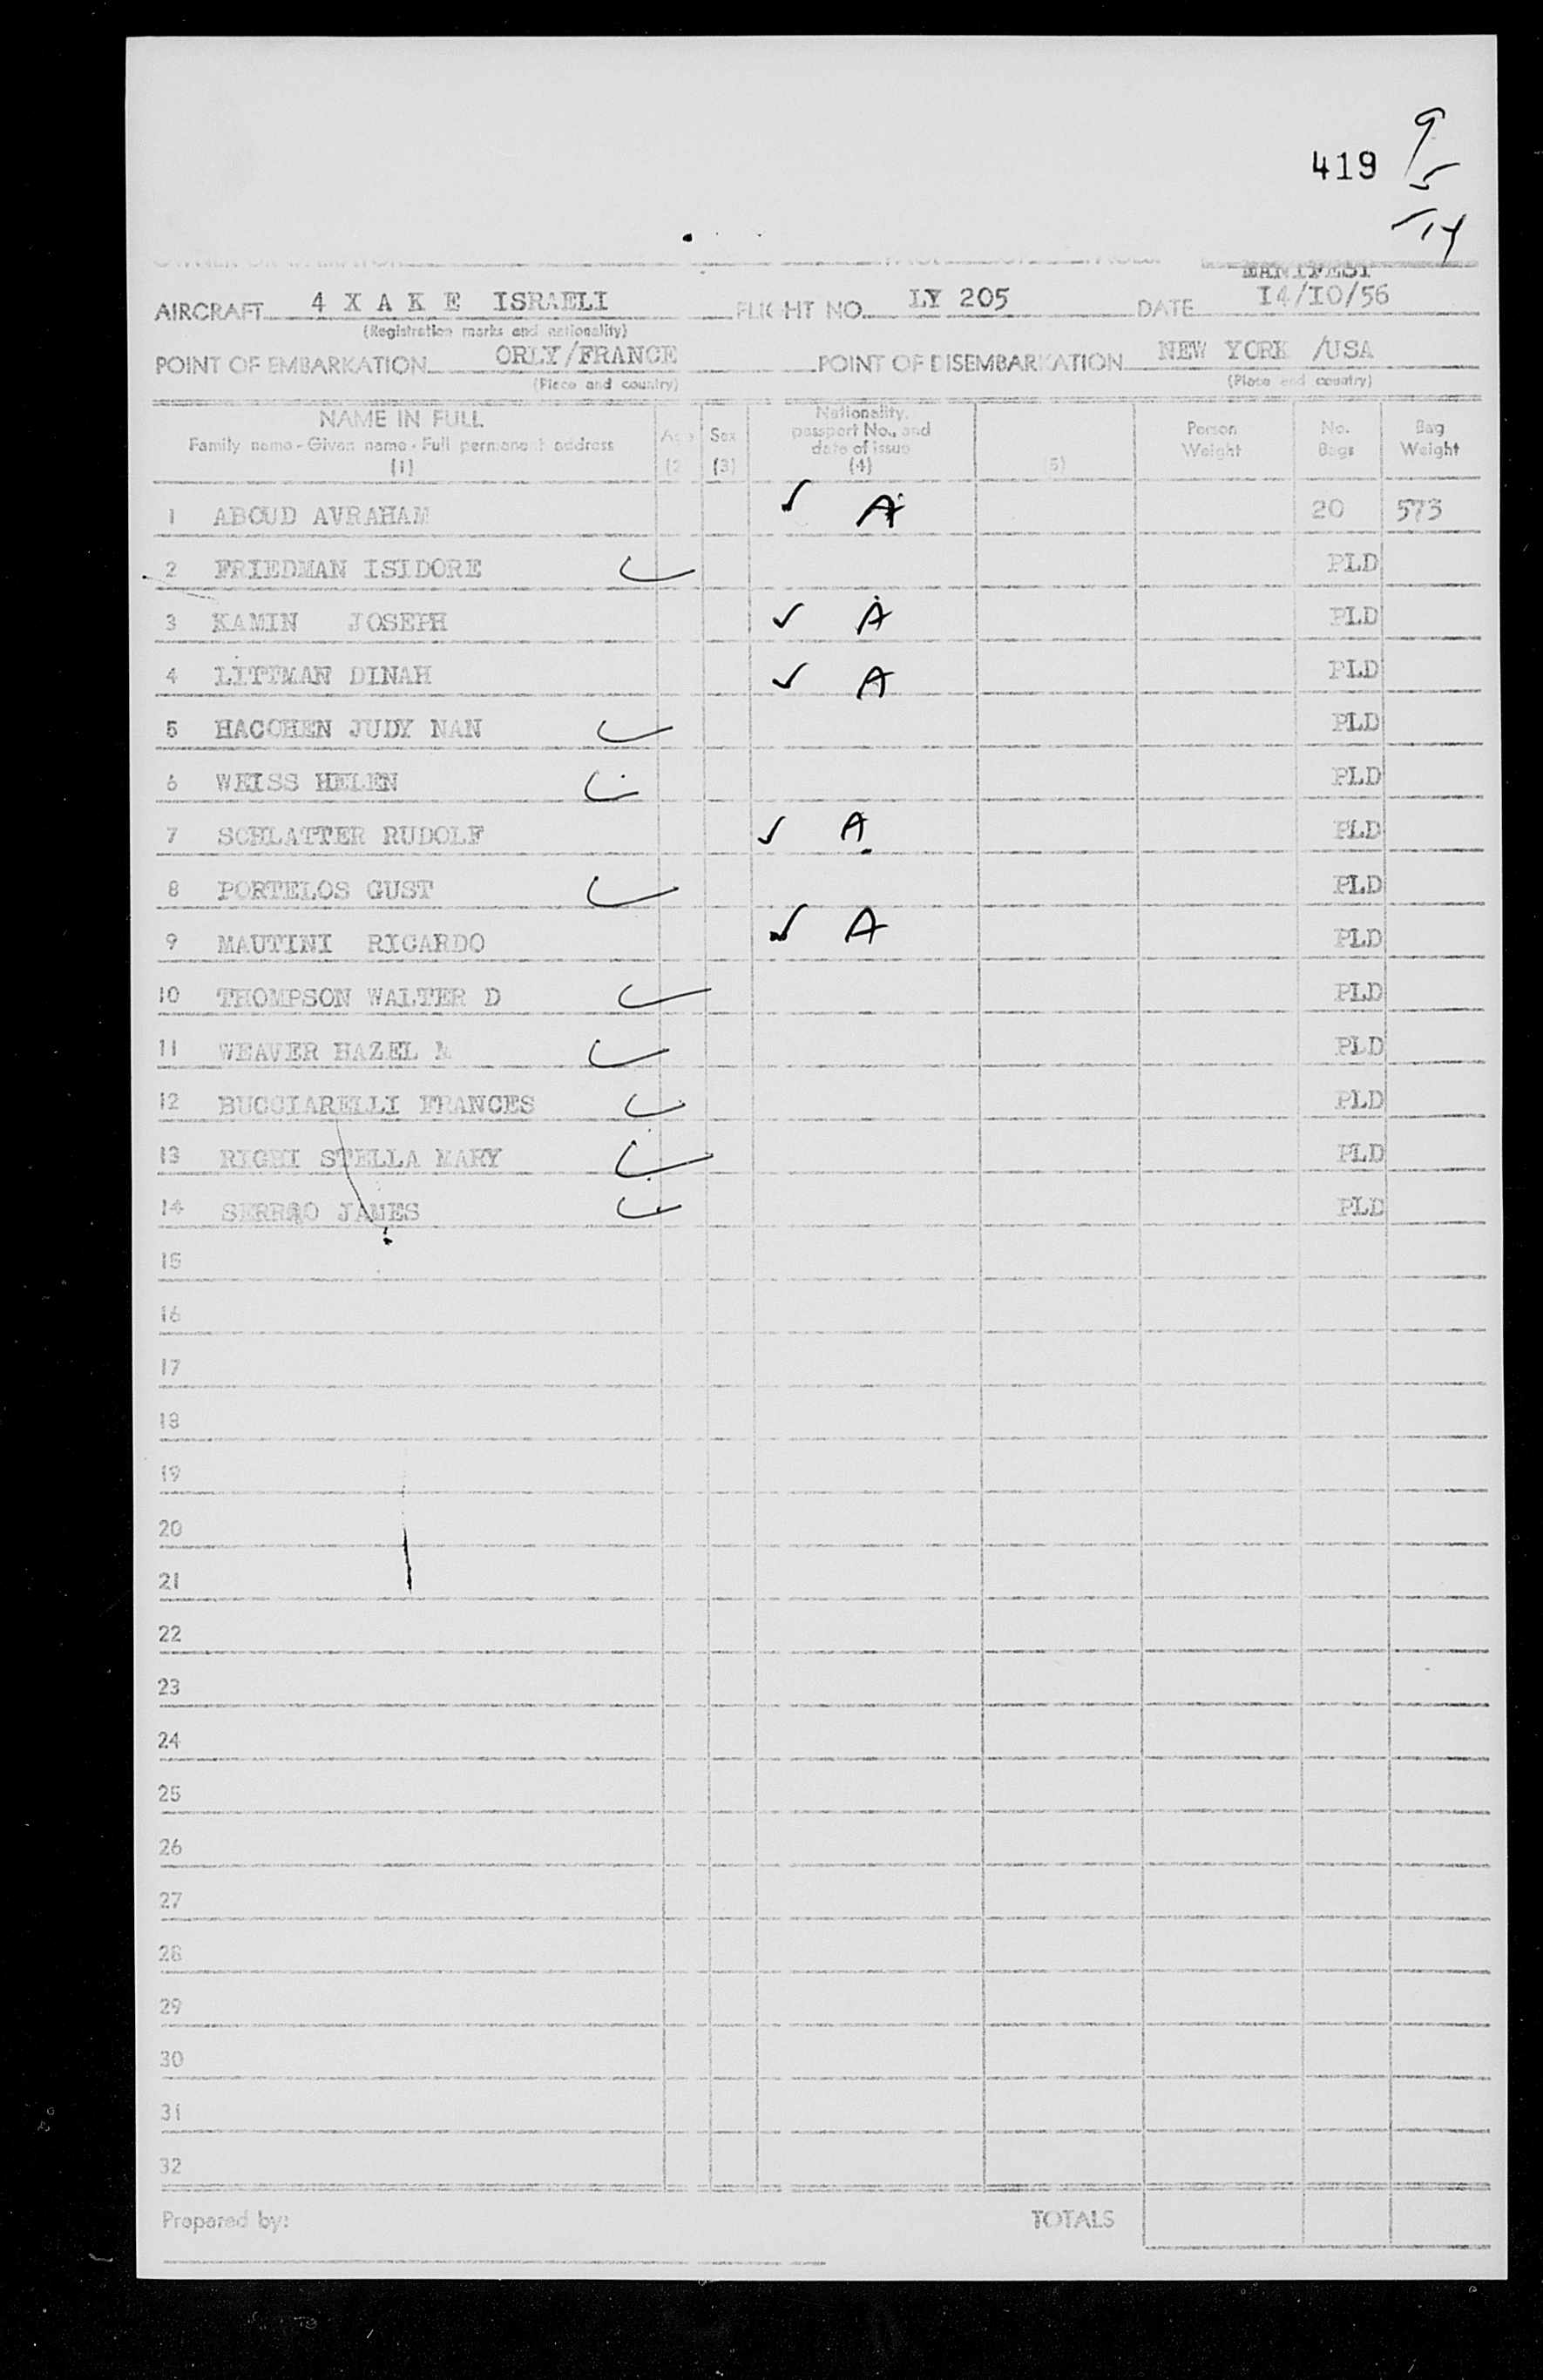 419 9
5
14
MANIFEST
AIRCRAFT 4 X A K E ISRAELI FLIGHT NO. LY 205 DATE I4/IO/56
(Registration marks and nationality)
POINT OF EMBARKATION ORLY/FRANCE POINT OF DISEMBARKATION NEW YORK /USA
(Place and country) (Place and country)
NAME IN FULL Age Sex Nationality, passport No., and date of issue Person Weight No. Bags Bag Weight
Family name - Given name - Full permanent address
(1) (2 (3) (4) (5)
1 ABOUD AVRAHAM ✓ A 20 573
2 FRIEDMAN ISIDORE PLD
3 KAMIN JOSEPH ✓ A PLD
4 LITTMAN DINAH ✓ A PLD
5 HACOHEN JUDY NAN PLD
6 WEISS HELEN PLD
7 SCHLATTER RUDOLF ✓ A PLD
8 PORTELOS GUST PLD
9 MAUTINI RICARDO ✓ A PLD
10 THOMPSON WALTER D PLD
11 WEAVER HAZEL M PLD
12 BUCCIARELLI FRANCES PLD
13 RIGHI STELLA MARY PLD
14 JAMES PLD
15
16
17
18
19
20
21
22
23
24
25
26
27
28
29
30
31
32
Prepared by: TOTALS